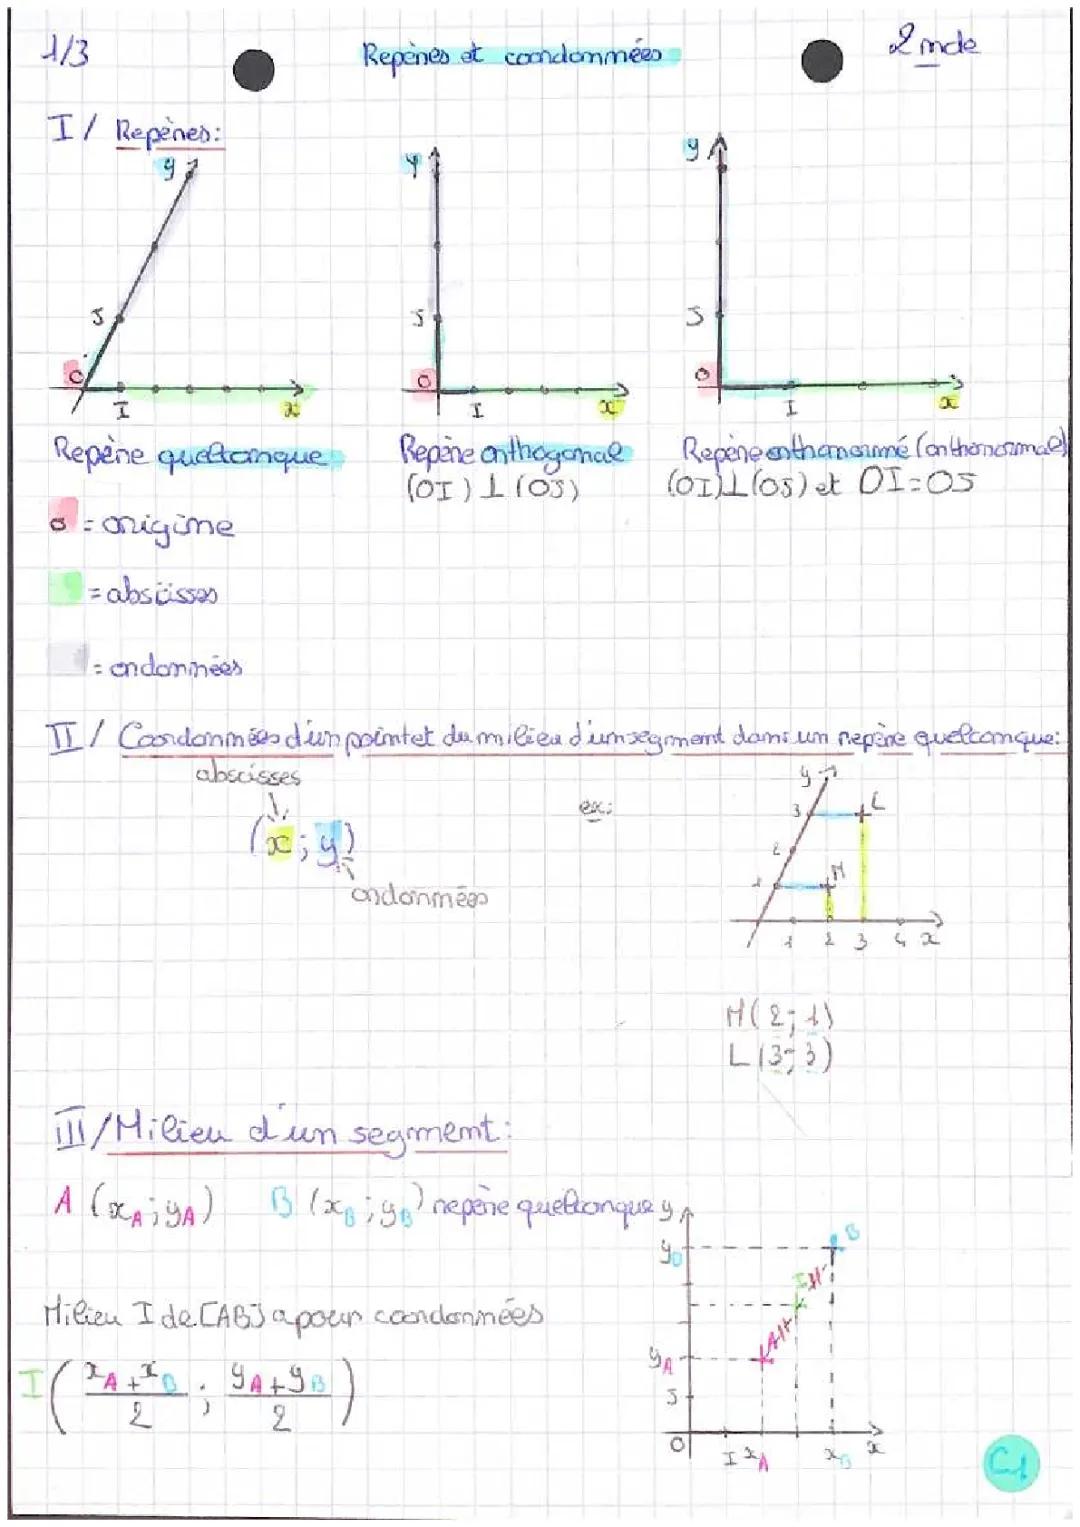 1/3
Repères et coordonnées
2nde
I/ Repères:
y
y
y
J
J
J
O
O
O
I
x
I
x
I
x
Repère quelconque
Repère orthogonal
Repère orthonormé (orthonormal)
(OI)⊥(OJ)
(OI)⊥(OJ) et OI=OJ
O = origine
= abscisses
= ordonnées
II/ Coordonnées d'un point et du milieu d'un segment dans un repère quelconque:
abscisses
(x ; y)
ordonnées
ex:
y
3
L
2
1
M
1 2 3 4 x
M(2; 1)
L(3; 3)
III/Milieu d'un segment:
A (xA ; yA) B (xB ; yB) repère quelconque
y
yB
B
I
yA
A
J
O
I xA xB x
Milieu I de [AB] a pour coordonnées
I ( xA + xB / 2 ; yA + yB / 2 )
C1